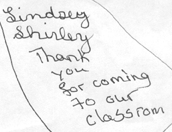 Lindsey
Shirley
Thank
you
for coming
to our
classrom